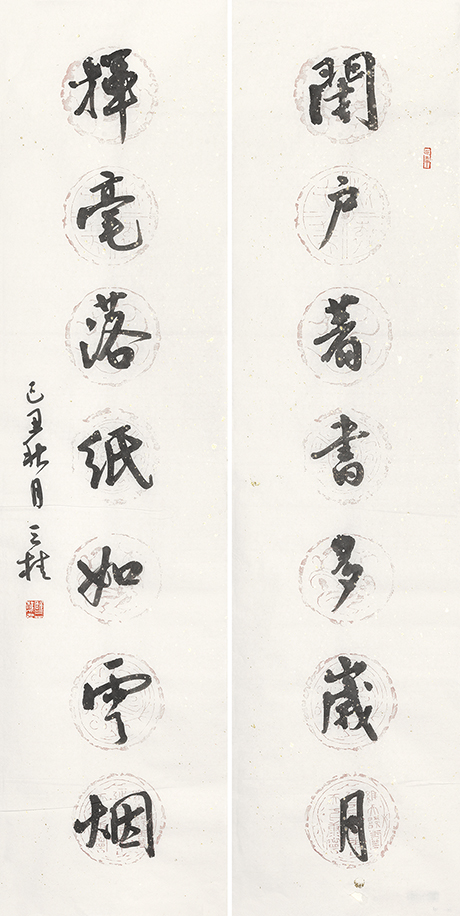 閉户著書多歲月
揮毫落紙如雲烟
己丑秋月